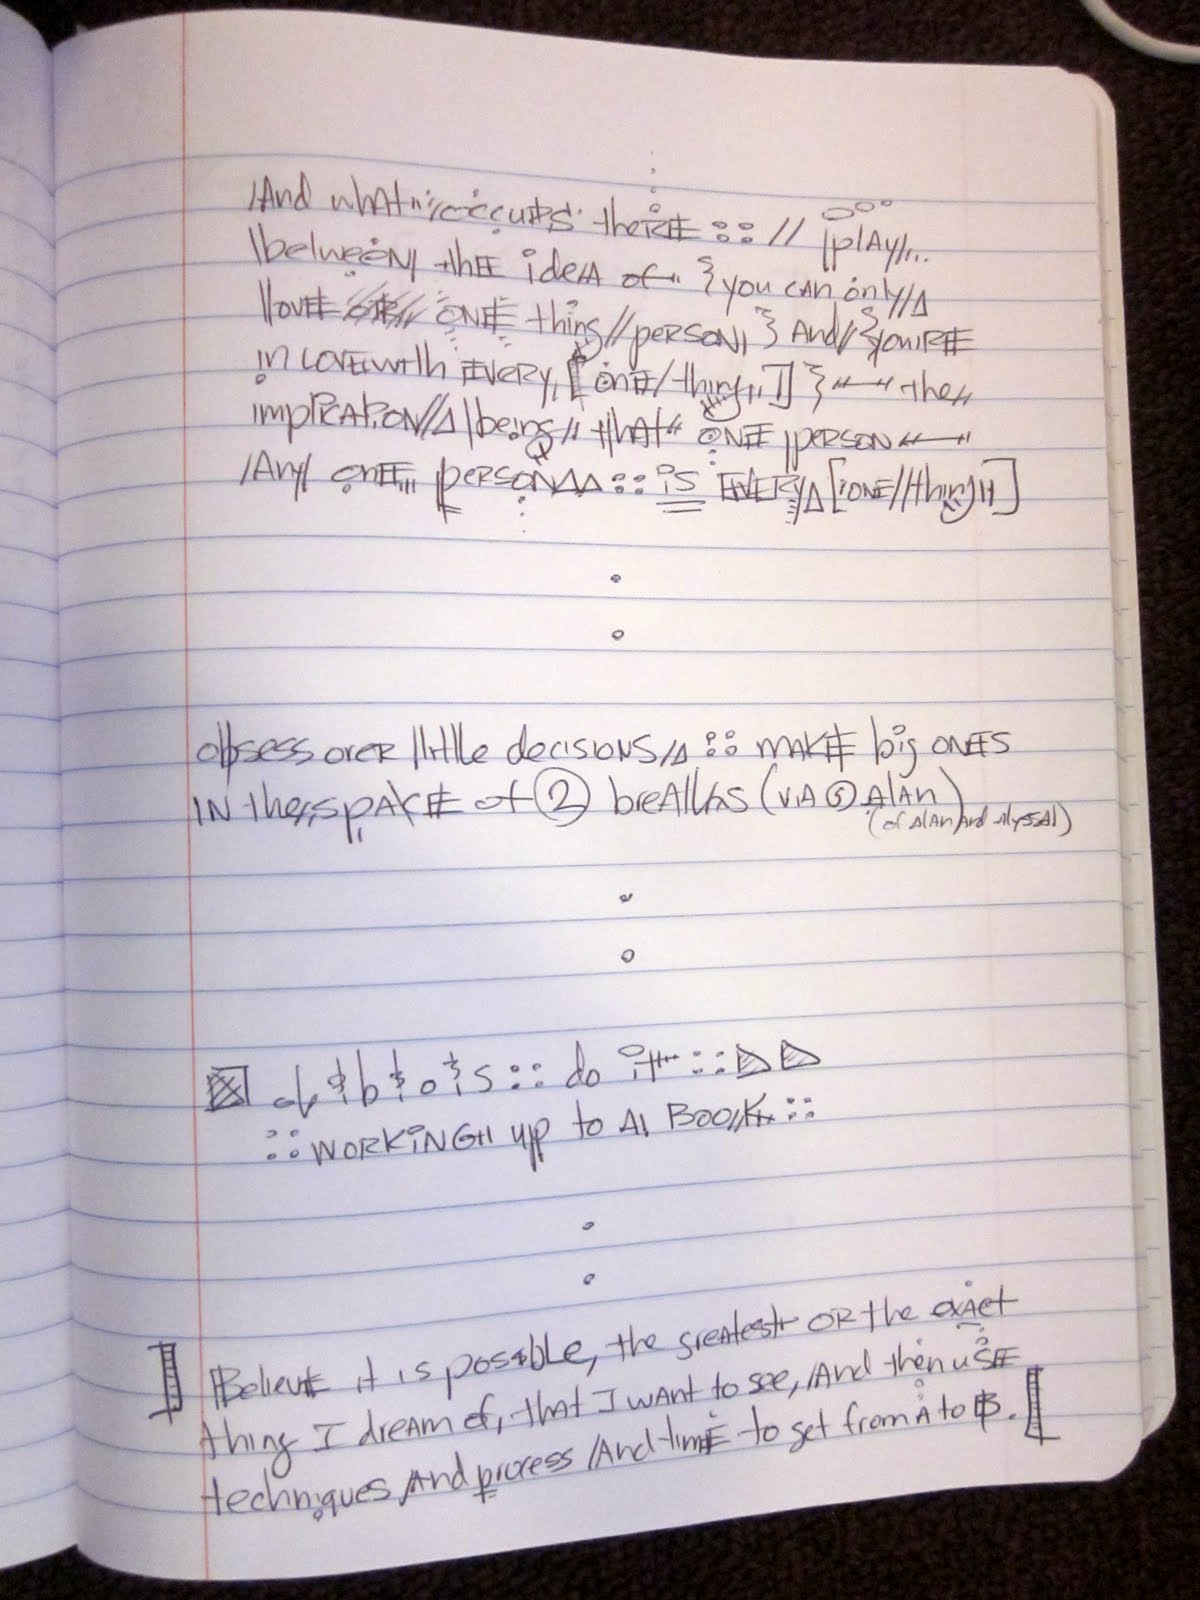 And what occurs there :: // play...
between the idea of {you can only
love ONE thing//person} And/{you're
in love with EVERY, [one/thing]} — the
implication being that ONE person —
Any one person :: is EVERY [one//thing]
obsess over little decisions :: make big ones
IN the space of ② breaths (via Alan)
(of Alan and Alyssa)
do it ::
:: WORKING up to BOOK ::
] Believe it is possible, the greatest OR the exact
thing I dream of, that I want to see, And then use
techniques, And process And time to get from A to B. [